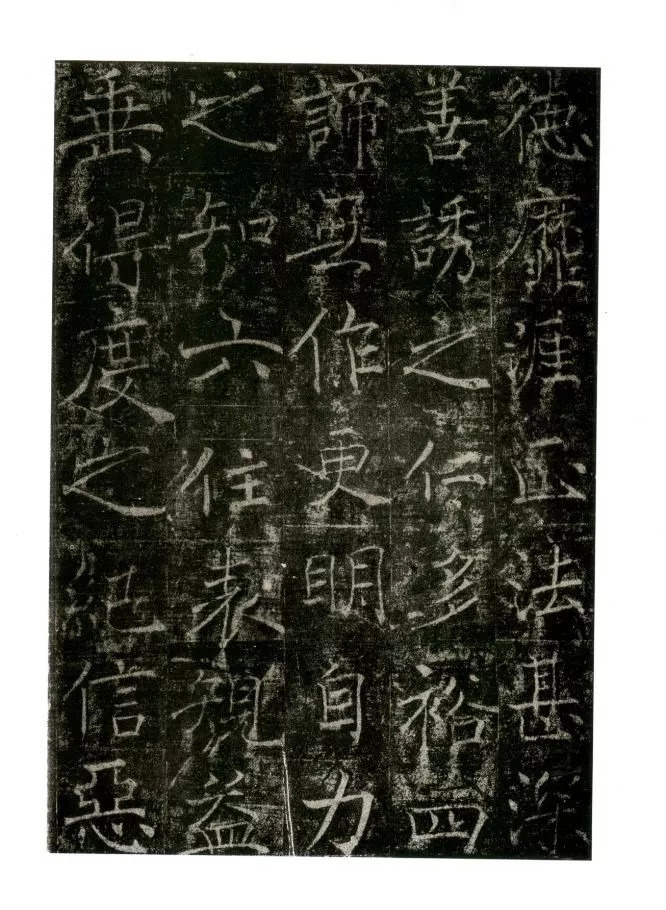 德靡涯正法甚深
善誘之仁多裕四
諦無作更明自力
之知六住表觀益
垂得度之紀信惡